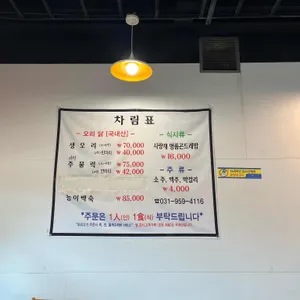 차림표
- 오리 닭 (국내산) -
생오리 ₩70,000
₩40,000
주물럭 ₩75,000
₩42,000
능이백숙 ₩85,000
- 식사류 -
₩16,000
- 주류 -
소주, 맥주, 막걸리
₩4,000
☎031-959-4116
*주문은 1人(인) 1食(식) 부탁드립니다*